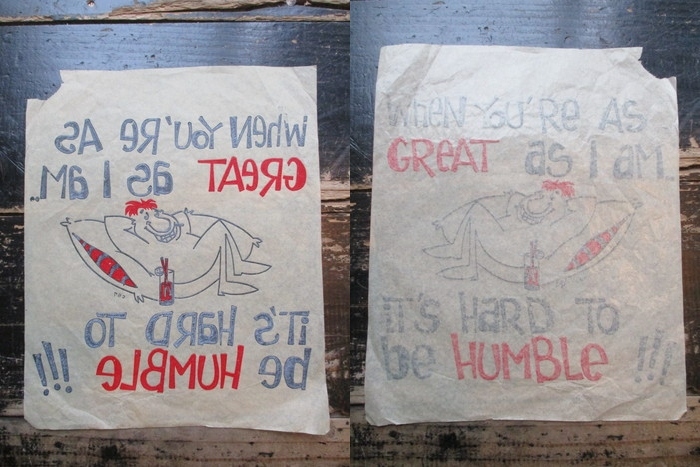 WHEN YOU'RE AS
GREAT as I am..
iT'S HARD TO
be HUMBLe !!!
WHEN YOU'RE AS
GREAT as I am..
iT'S HARD TO
be HUMBLe !!!